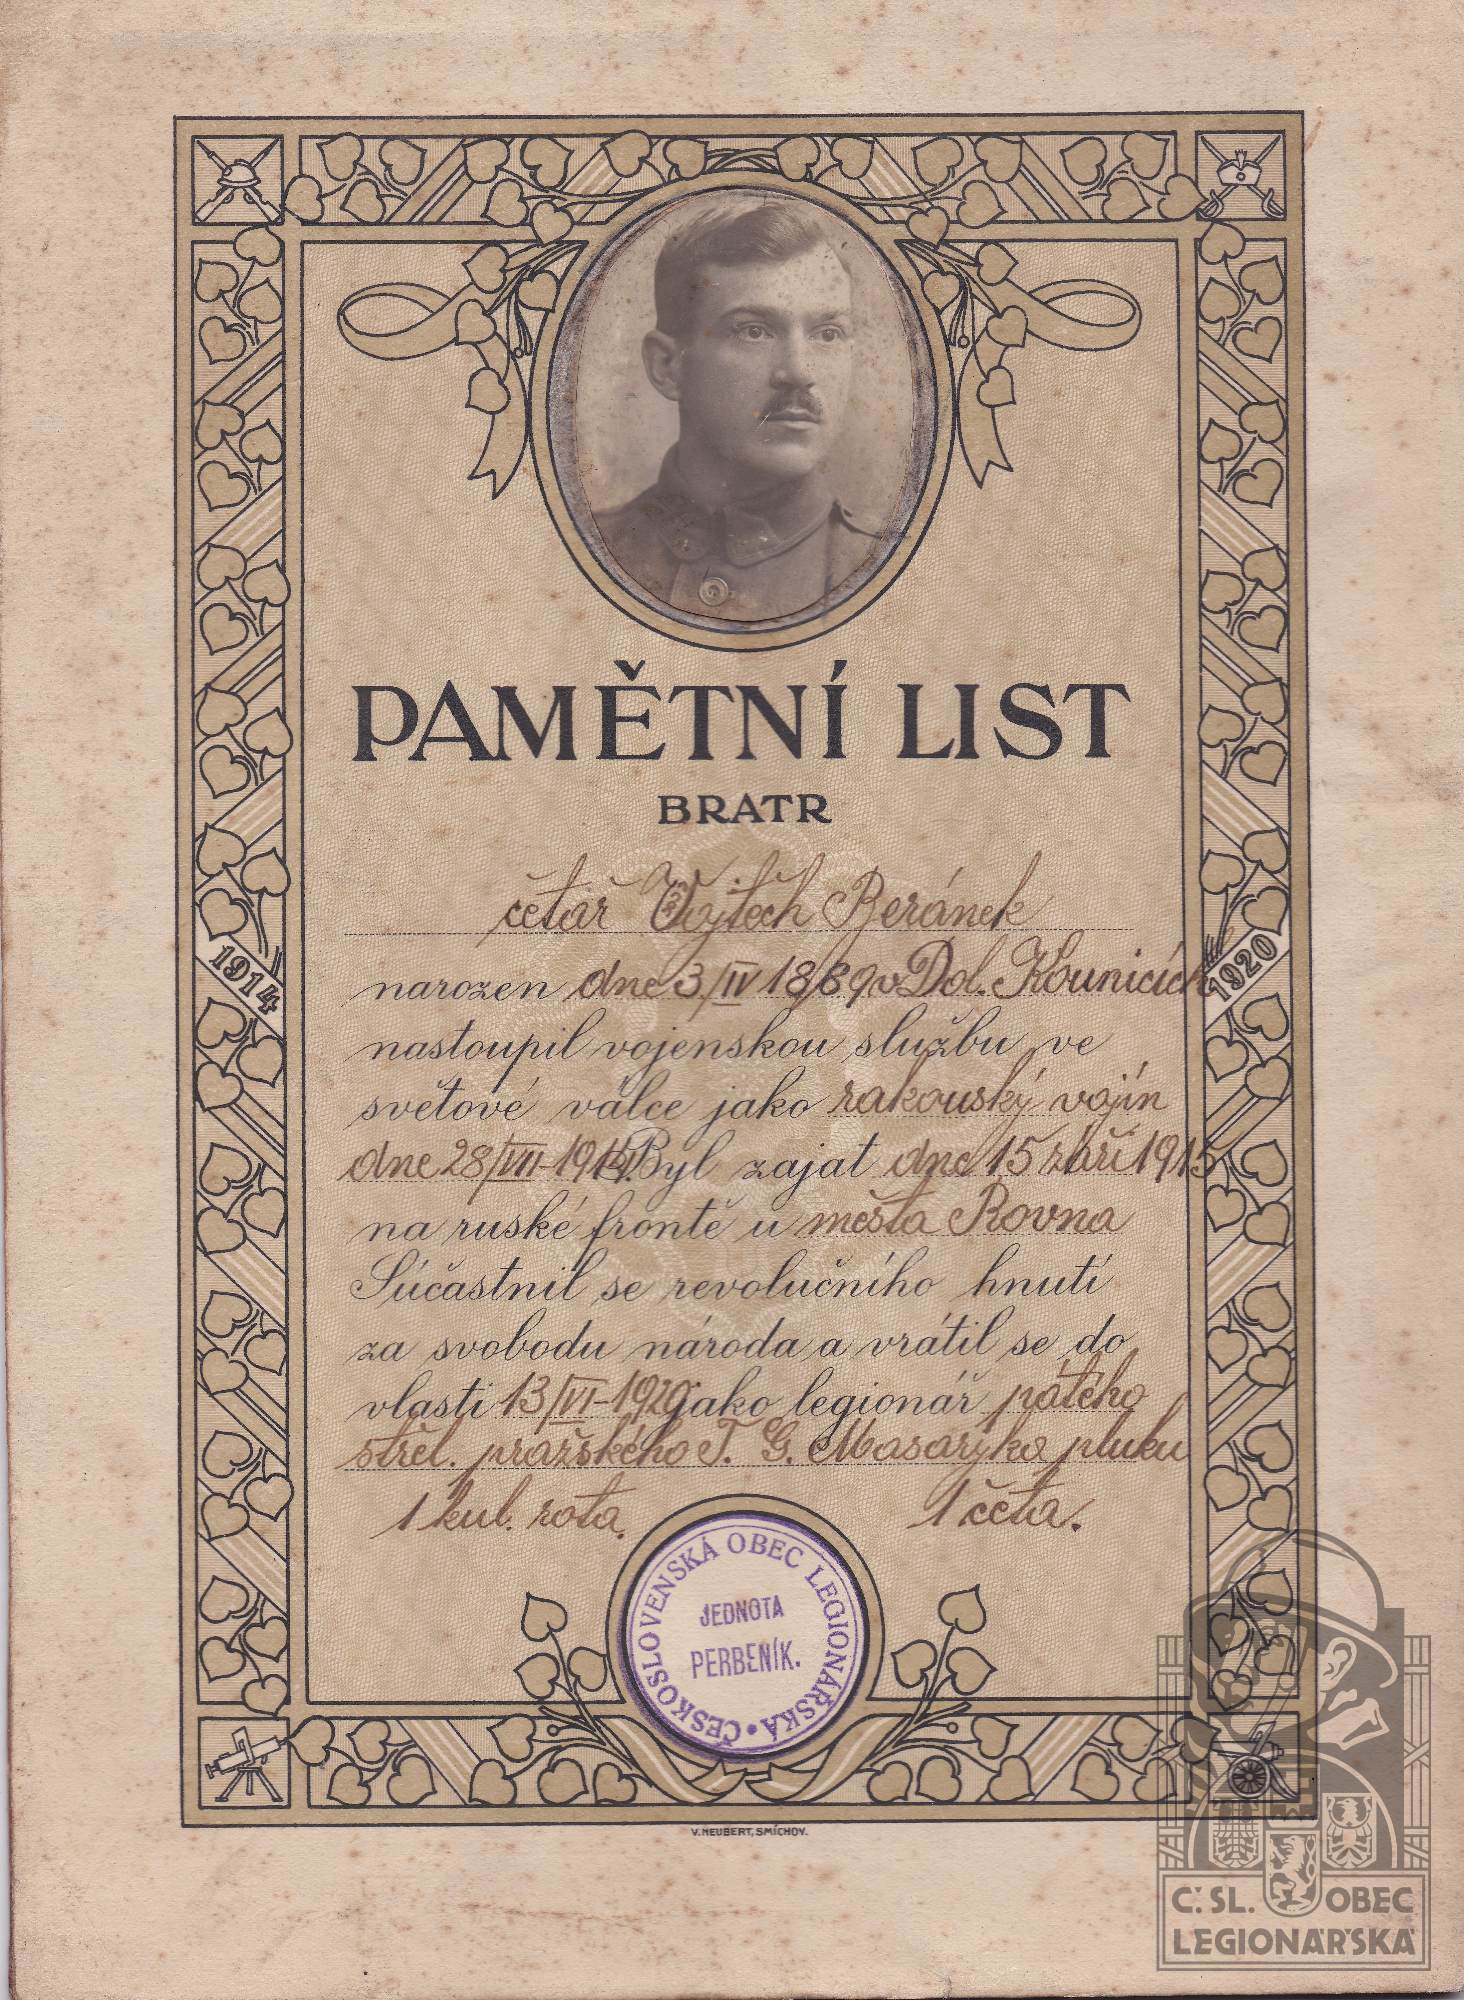 PAMĚTNÍ LIST
BRATR
četař Vojtěch Beránek
narozen dne 3/IV 1889 v Dol. Kounicích
nastoupil vojenskou službu ve
světové válce jako rakouský vojín
dne 28/VII-1914. Byl zajat dne 15 září 1915
na ruské frontě u města Rovna
Súčastnil se revolučního hnutí
za svobodu národa a vrátil se do
vlasti 13/VI-1920 jako legionář pátého
střel. pražského T. G. Masaryka pluku
1 kul. rota. 1 četa.
1914
1920
ČESKOSLOVENSKÁ OBEC LEGIONÁŘSKÁ •
JEDNOTA
PERBENÍK.
V. NEUBERT, SMÍCHOV.
Č. SL. OBEC
LEGIONÁŘSKÁ